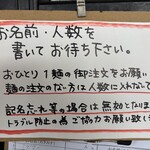 お名前・人数を
書いてお待ち下さい。
おひとり1麺の御注文をお願い
麺の注文のない方は人数に入れないで
記名だけ、水等の場合は無効となりま
トラブル防止の為ご協力お願い致し